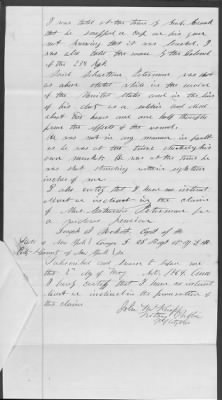 I was told at the time by
that he snapped a cap on his gun
not knowing that it was loaded. I
was also told the same by the Colonel
of the 25 Regt.
Said Sebastian Peterman was shot
as above stated while in the service
of the United States and in the line
of his duty as a soldier and died
about two hours and one half thereafter
from the effects of the wound.
He was not in any manner in fault
as he was at the time checking his
own musket. He was at the time he
was shot standing within eighteen
inches of me.
I also certify that I have no interest
direct or indirect in the claim
of Mrs Catharine Peterman for a
pension.
Joseph A. Capt of the
State of New York Company I 25 Regt of N.Y. S.
City & County of New York ss.
Subscribed and sworn to before me
this 5th day of May A.D., 1864. And
I hereby certify that I have no interest
direct or indirect in the prosecution of
this claim.
John
Notary Public
N.Y. City &c